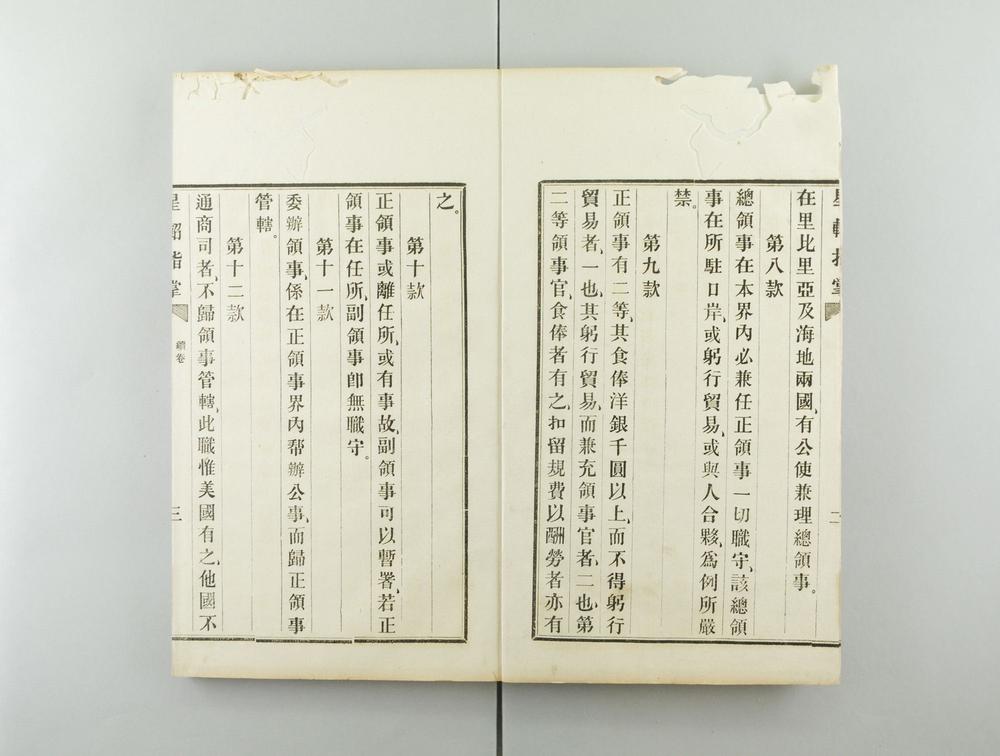 星軺指掌
在里比里亞及海地兩國、有公使兼理總領事。
第八款
總領事在本界內必兼任正領事一切職守、該總領
事在所駐口岸、或躬行貿易、或與人合夥、爲例所嚴
禁。
第九款
正領事有二等、其食俸洋銀千圓以上、而不得躬行
貿易者、一也、其躬行貿易、而兼充領事官者、二也、第
二等領事官、食俸者有之、扣留規費以酬勞者亦有
之。
第十款
正領事或離任所、或有事故、副領事可以暫署、若正
領事在任所、副領事卽無職守。
第十一款
委辦領事、係在正領事界內帮辦公事、而歸正領事
管轄。
第十二款
通商司者、不歸領事管轄、此職惟美國有之、他國不
星軺指掌
續卷
三